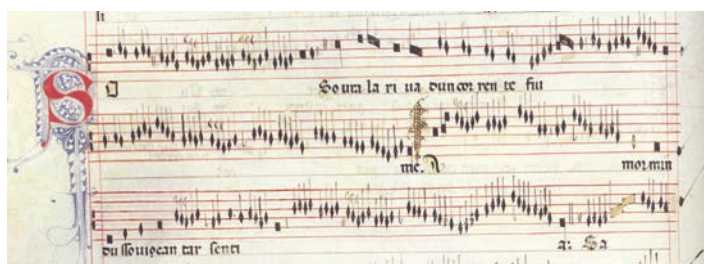 li
SO Soura la ri ua duncor ren te fiu
me. A mormin
du ssouiocan tar senti a: Sa